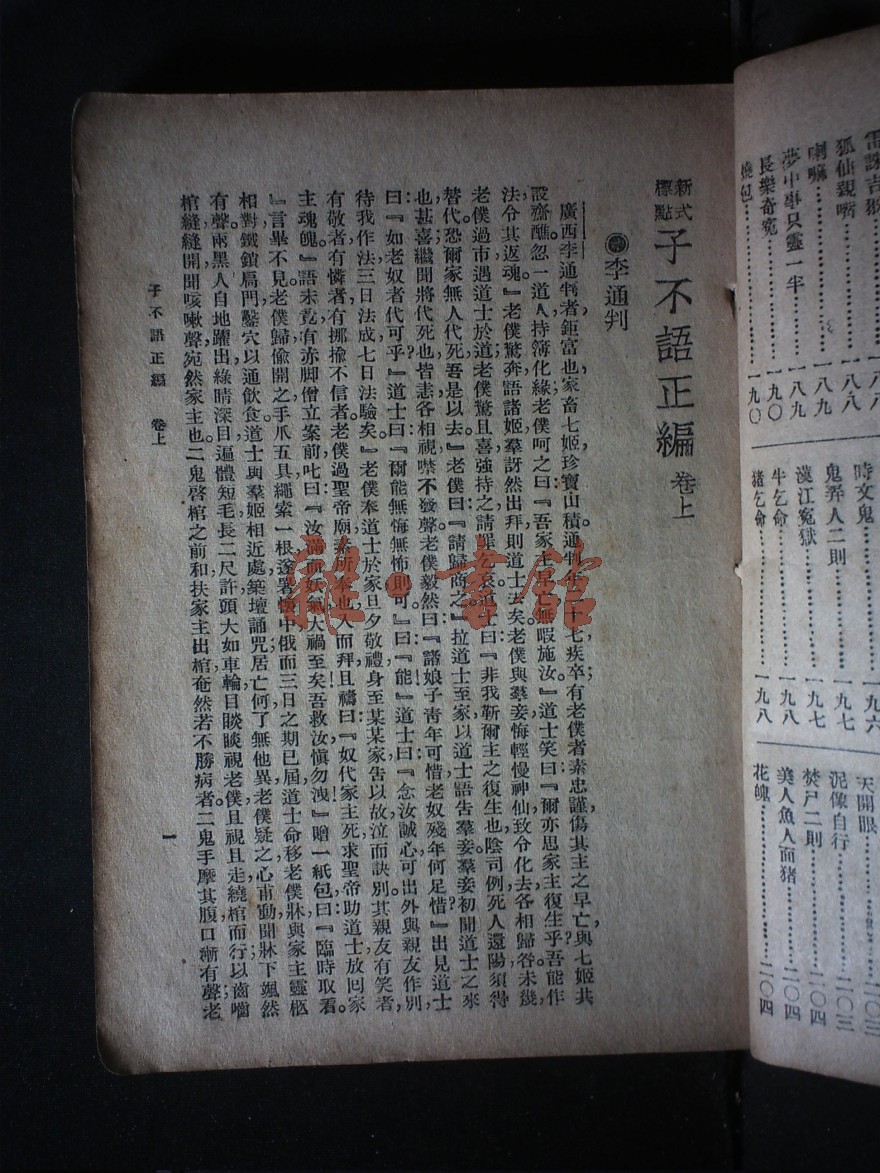 新式標點 子不語正編 卷上
李通判
廣西李通判者，鉅富也，家畜七姬，珍寶山積。通判年二十七疾卒；有老僕者，素忠謹，傷其主之早亡，與七姬共
設齋醮。忽一道人持簿化緣，老僕呵之曰：『吾家主早亡，無暇施汝。』道士笑曰：『爾亦思家主復生乎？吾能作
法，令其返魂。』老僕驚，奔語諸姬，羣訝然出拜，則道士去矣。老僕與羣妾悔輕慢神仙，致令化去，各相歸咎。未幾，
老僕過市，遇道士於道，老僕驚且喜，強持之，請罪乞哀。道士曰：『非我靳爾主之復生也，陰司例，死人還陽，須得
替代，恐爾家無人代死，吾是以去。』老僕曰：『請歸商之。』拉道士至家，以道士語告羣妾。羣妾初聞道士之來
也，甚喜；繼聞將代死也，皆恚，各相視，噤不發聲。老僕毅然曰：『諸娘子青年可惜，老奴殘年何足惜？』出見道士
曰：『如老奴者代，可乎？』道士曰：『爾能無悔無怖則可。』曰：『能。』道士曰：『念汝誠心，可出外與親友作別，
待我作法，三日法成，七日法驗矣。』老僕奉道士於家，旦夕敬禮，身至某某家，告以故，泣而訣別。其親友有笑者，
有敬者，有憐者，有揶揄不信者。老僕過聖帝廟，素所奉也，入而拜且禱曰：『奴代家主死，求聖帝助道士放回家
主魂魄。』語未竟，有赤脚僧立案前叱曰：『汝滿面妖氣，大禍至矣！吾救汝，愼勿洩。』贈一紙包曰：『臨時取看。
』言畢不見。老僕歸，偷開之：手爪五具，繩索一根。遂置懷中。俄而三日之期已屆，道士命移老僕牀與家主靈柩
相對，鐵鎖扃門，鑿穴以通飲食。道士與羣姬相近處築壇誦咒。居亡何，了無他異。老僕疑之，心甫動，聞牀下颯然
有聲，兩黑人自地躍出：綠睛深目，通體短毛，長二尺許，頭大如車輪；目睒睒視老僕，且視且走，繞棺而行，以齒嚙
棺縫，縫開，聞咳嗽聲，宛然家主也。二鬼啓棺之前和，扶家主出棺，奄然若不勝病者。二鬼手摩其腹，口漸有聲。老
子不語正編 卷上
一
狐仙親嘴………一八八
喇嘛………一八九
夢中事只靈一半………一八九
長樂奇冤………一九〇
燒包………一九〇
時文鬼………一九六
鬼弄人二則………一九七
漢江冤獄………一九七
牛乞命………一九八
豬乞命………一九八
天開眼………二〇三
泥像自行………二〇三
焚尸二則………二〇四
美人魚人面豬………二〇四
花魄………二〇四
雜·書館